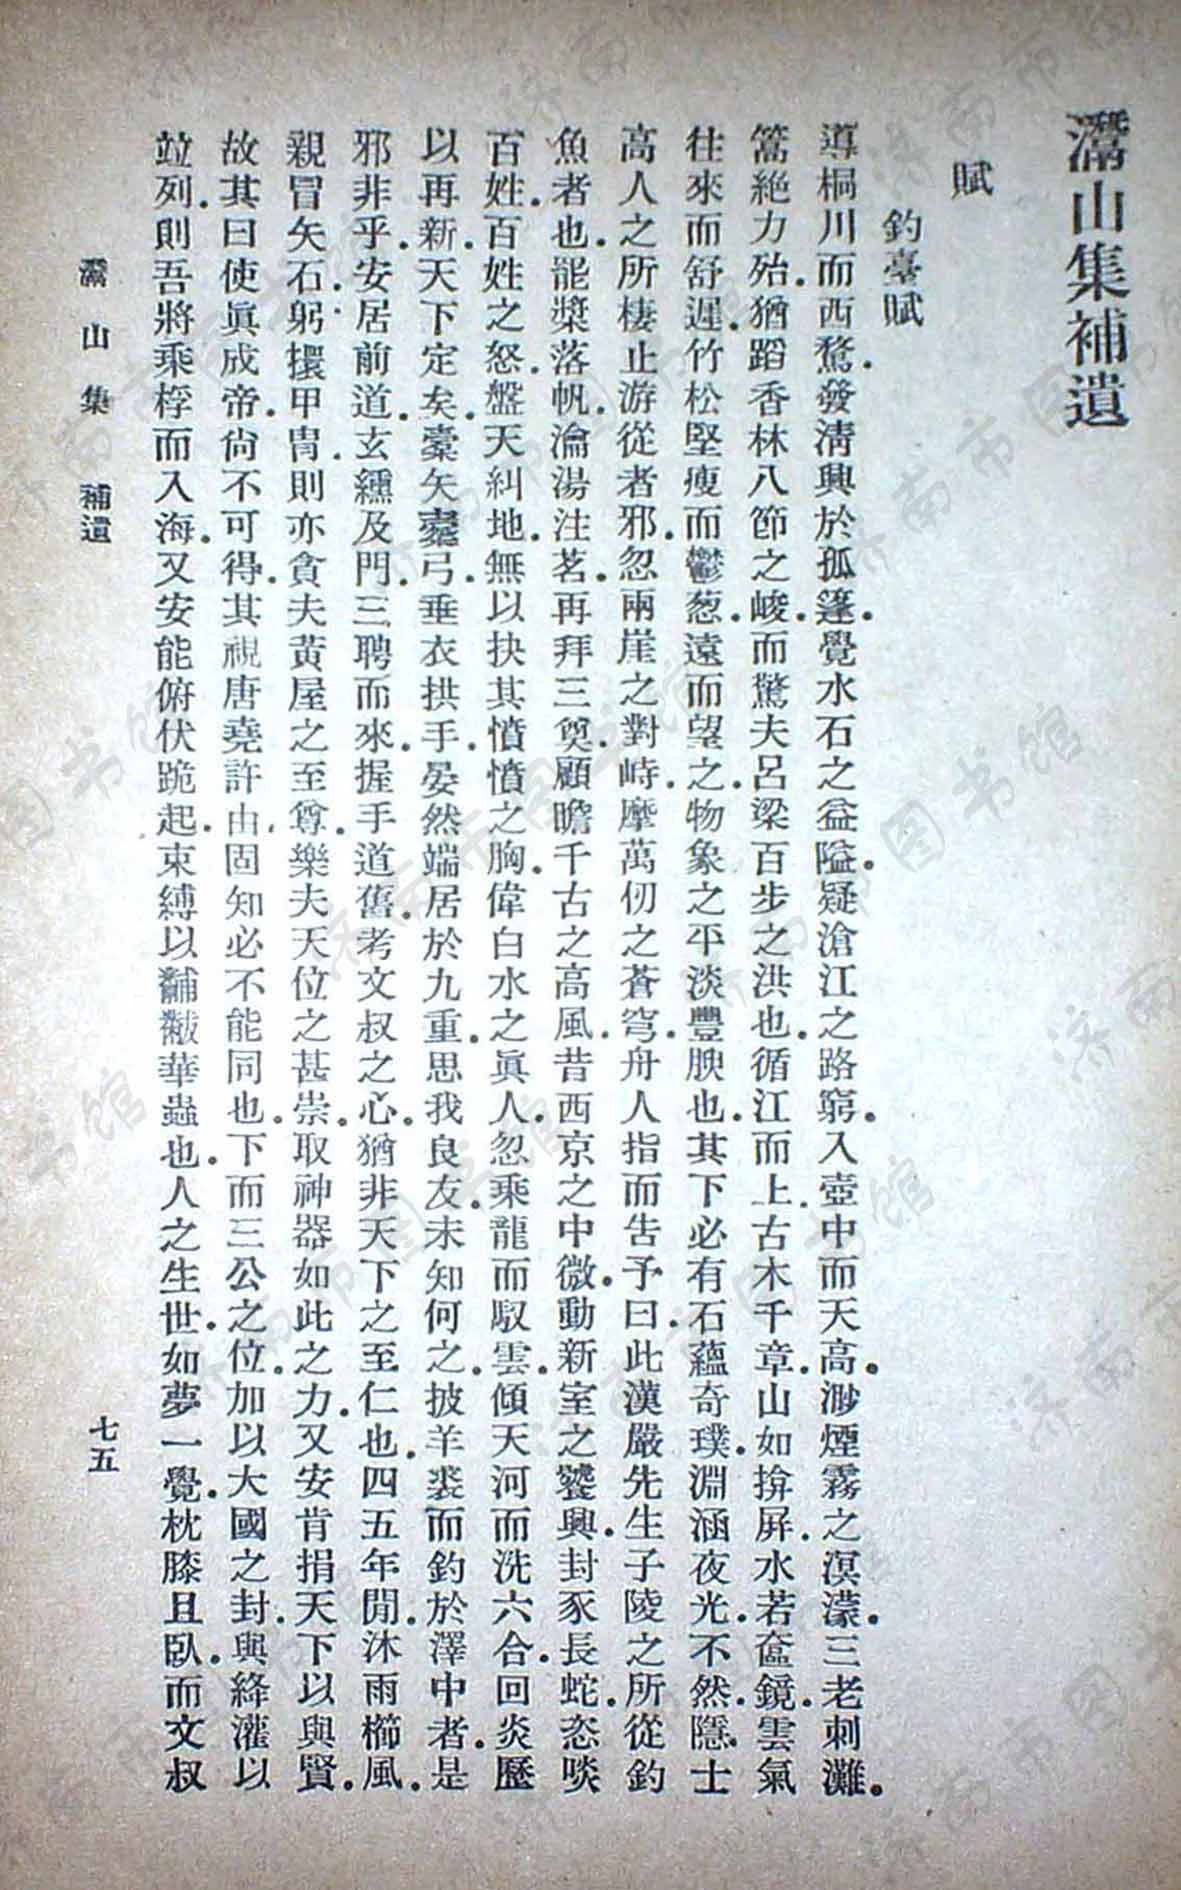 灊山集補遺
賦
釣臺賦
導桐川而西騖.發清興於孤篷.覺水石之益隘.疑滄江之路窮.入壺中而天高.渺煙霧之溟濛.三老刺灘.
篙絕力殆.猶蹈香林八節之峻.而驚夫呂梁百步之洪也.循江而上.古木千章.山如揜屏.水若奩鏡.雲氣
往來而舒遲.竹松堅瘦而鬱葱.遠而望之.物象之平淡豐腴也.其下必有石蘊奇璞.淵涵夜光.不然.隱士
高人之所棲止游從者邪.忽兩崖之對峙.摩萬仞之蒼穹.舟人指而告予曰.此漢嚴先生子陵之所從釣
魚者也.罷槳落帆.瀹湯注茗.再拜三奠.顧瞻千古之高風.昔西京之中微.動新室之饕興.封豕長蛇.恣啖
百姓.百姓之怒.盤天糾地.無以抉其憤憤之胸.偉白水之眞人.忽乘龍而馭雲.傾天河而洗六合.回炎歷
以再新.天下定矣.櫜矢韔弓.垂衣拱手.晏然端居於九重.思我良友.未知何之.披羊裘而釣於澤中者.是
邪非乎.安居前道.玄纁及門.三聘而來.握手道舊.考文叔之心.猶非天下之至仁也.四五年閒.沐雨櫛風.
親冒矢石.躬擐甲冑.則亦貪夫黃屋之至尊.樂夫天位之甚崇.取神器如此之力.又安肯捐天下以與賢.
故其曰使眞成帝.尙不可得.其視唐堯許由.固知必不能同也.下而三公之位.加以大國之封.與絳灌以
竝列.則吾將乘桴而入海.又安能俯伏跪起.束縛以黼黻華蟲也.人之生世.如夢一覺.枕膝且臥.而文叔
灊山集 補遺
七五